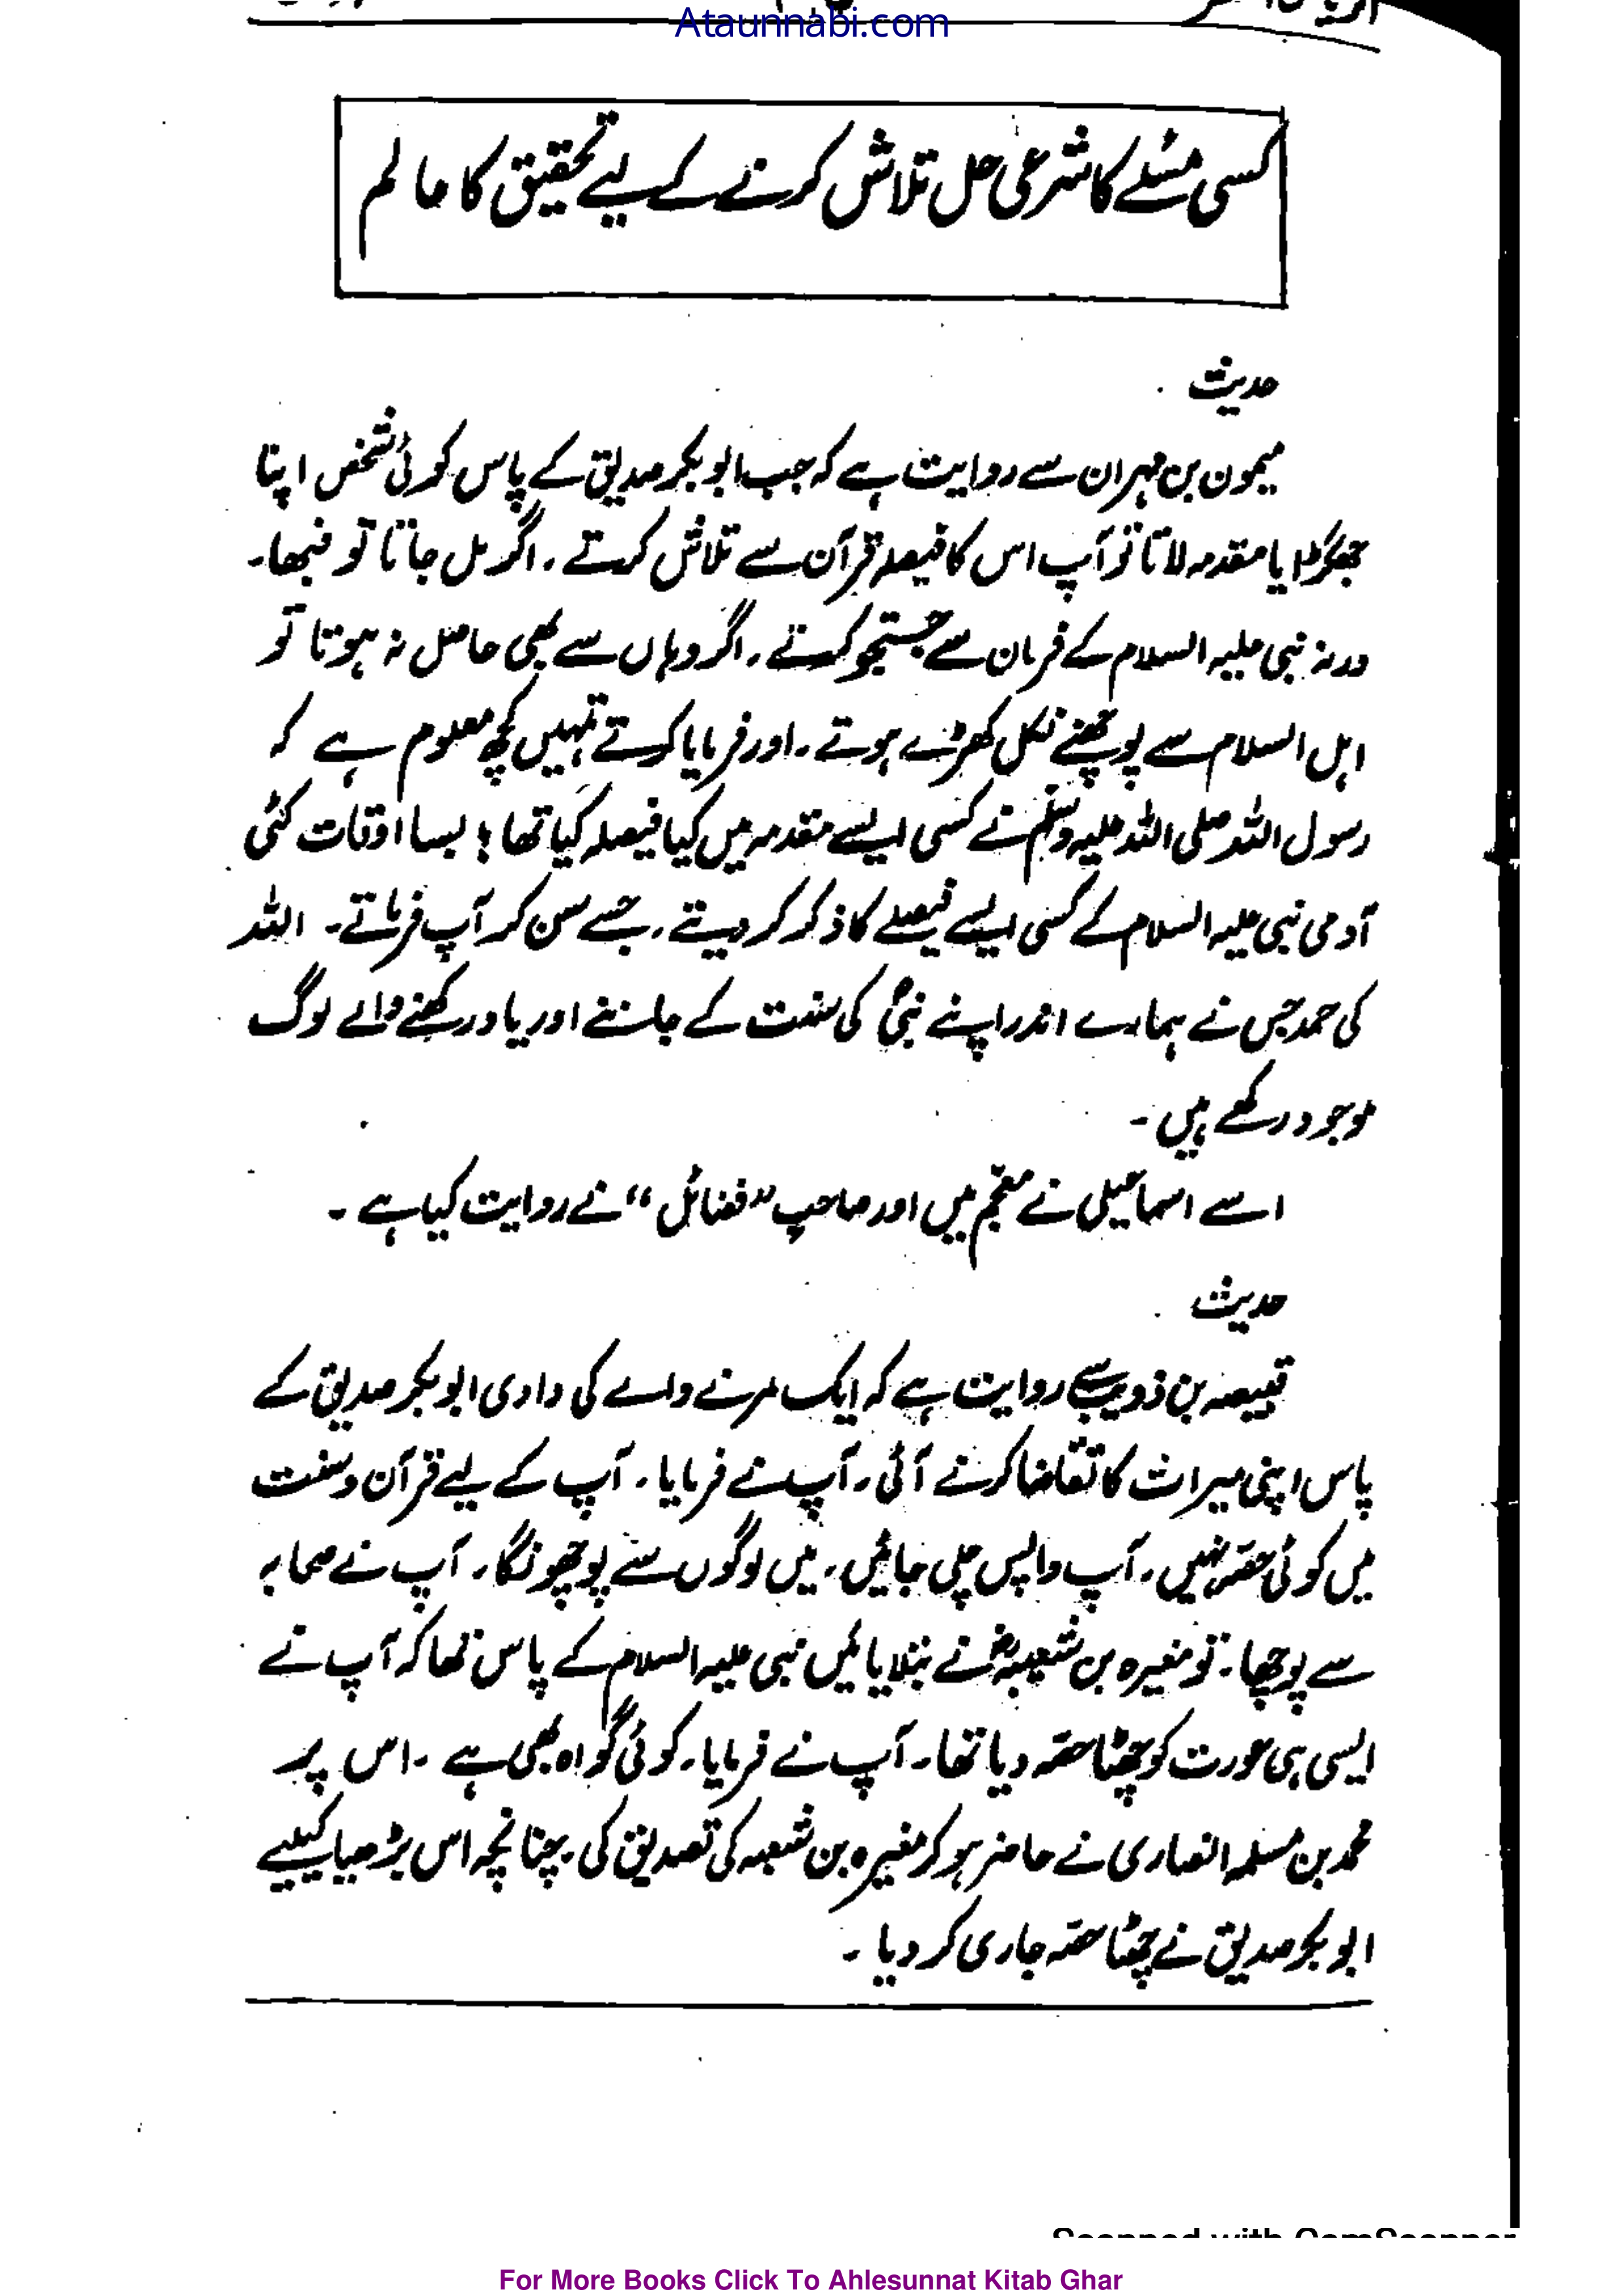 Ataunnabi.com
کسی مسئلے کا شرعی حل تلاش کرنے کے لیے تحقیق کا عالم
حدیث
میمون بن مہران سے روایت ہے کہ جب ابوبکر صدیق کے پاس کوئی شخص اپنا
جھگڑا یا مقدمہ لاتا تو آپ اس کا فیصلہ قرآن سے تلاش کرتے۔ اگر مل جاتا تو فبھا۔
ورنہ نبی علیہ السلام کے فرمان سے جستجو کرتے۔ اگر وہاں سے بھی حاصل نہ ہوتا تو
اہل السلام سے پوچھنے نکل کھڑے ہوتے۔ اور فرمایا کرتے تمہیں کچھ معلوم ہے کہ
رسول اللہ صلی اللہ علیہ وسلم نے کسی ایسے مقدمہ میں کیا فیصلہ کیا تھا؛ بسا اوقات کئی
آدمی نبی علیہ السلام کے کسی ایسے فیصلے کا ذکر کر دیتے۔ جسے سن کر آپ فرماتے۔ اللہ
کی حمد جس نے ہمارے اندر اپنے نبیؐ کی سنت کے جاننے اور یاد رکھنے والے لوگ
موجود رکھے ہیں۔
اسے اسماعیلی نے معجم میں اور صاحب ”فضائل“ نے روایت کیا ہے۔
حدیث
قبیصہ بن ذویب سے روایت ہے کہ ایک مرنے والے کی دادی ابوبکر صدیق کے
پاس اپنی میراث کا تقاضا کرنے آئی۔ آپ نے فرمایا۔ آپ کے لیے قرآن و سنت
میں کوئی حصّہ نہیں۔ آپ واپس چلی جائیں، میں لوگوں سے پوچھونگا۔ آپ نے صحابہ
سے پوچھا۔ تو مغیرہ بن شعبہؓ نے بتلایا میں نبی علیہ السلام کے پاس تھا کہ آپ نے
ایسی ہی عورت کو چھٹا حصّہ دیا تھا۔ آپ نے فرمایا۔ کوئی گواہ بھی ہے۔ اس پر
محمد بن مسلمہ انصاری نے حاضر ہو کر مغیرہ بن شعبہ کی تصدیق کی۔ چنانچہ اس بڑھیا کیلیے
ابوبکر صدیق نے چھٹا حصّہ جاری کر دیا۔
Scanned with CamScanner
For More Books Click To Ahlesunnat Kitab Ghar